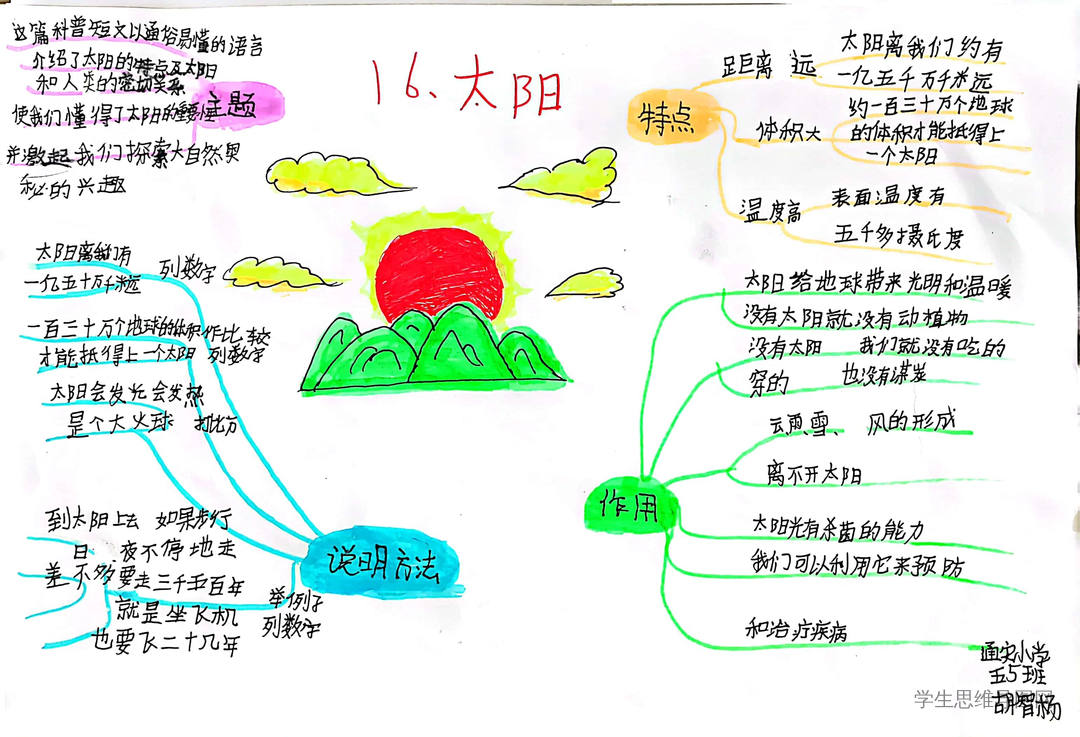 16、太阳
主题
这篇科普短文以通俗易懂的语言
介绍了太阳的特点及太阳
和人类的密切关系
使我们懂得了太阳的重要性
并激起我们探索大自然奥
秘的兴趣
特点
距离 远
太阳离我们约有
一亿五千万千米远
体积大
约一百三十万个地球
的体积才能抵得上
一个太阳
温度高
表面温度有
五千多摄氏度
作用
太阳给地球带来光明和温暖
没有太阳就没有动植物
没有太阳 我们就没有吃的
穿的 也没有煤炭
云、雨、雪、 风的形成
离不开太阳
太阳光有杀菌的能力
我们可以利用它来预防
和治疗疾病
说明方法
太阳离我们有
一亿五千万千米远
列数字
一百三十万个地球的体积
才能抵得上一个太阳
作比较
列数字
太阳会发光会发热
是个大火球 打比方
到太阳上去 如果步行
日 夜不停地走
差不多要走三千五百年
就是坐飞机
也要飞二十几年
举例子
列数字
小学
五5班
胡智杨
学生思维导图网